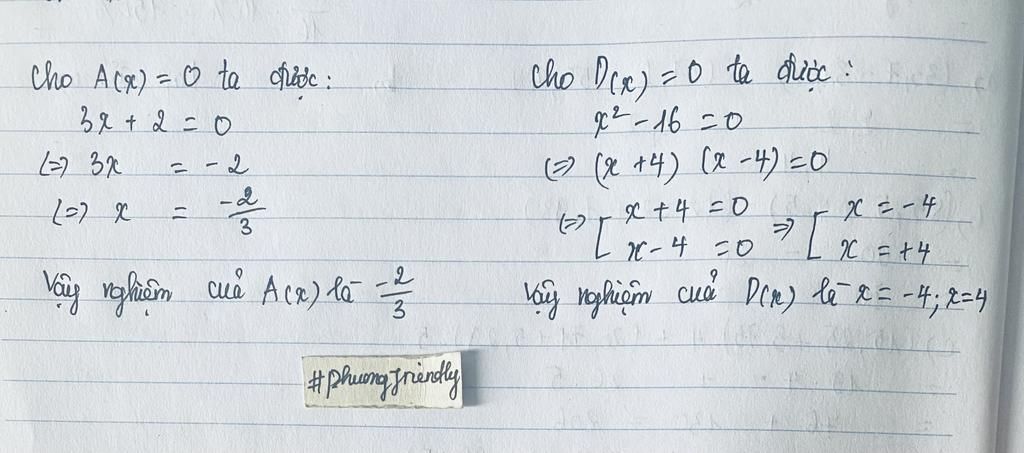 Cho A(x) = 0 ta được:
3x + 2 = 0
(=) 3x = - 2
(=) x = -2/3
Vậy nghiệm của A(x) là -2/3
Cho D(x) = 0 ta được:
x² - 16 = 0
(=) (x + 4) (x - 4) = 0
(=) [ x + 4 = 0 => [ x = - 4
x - 4 = 0 x = + 4
Vậy nghiệm của D(x) là x = -4; x=4
#phuongfriendly